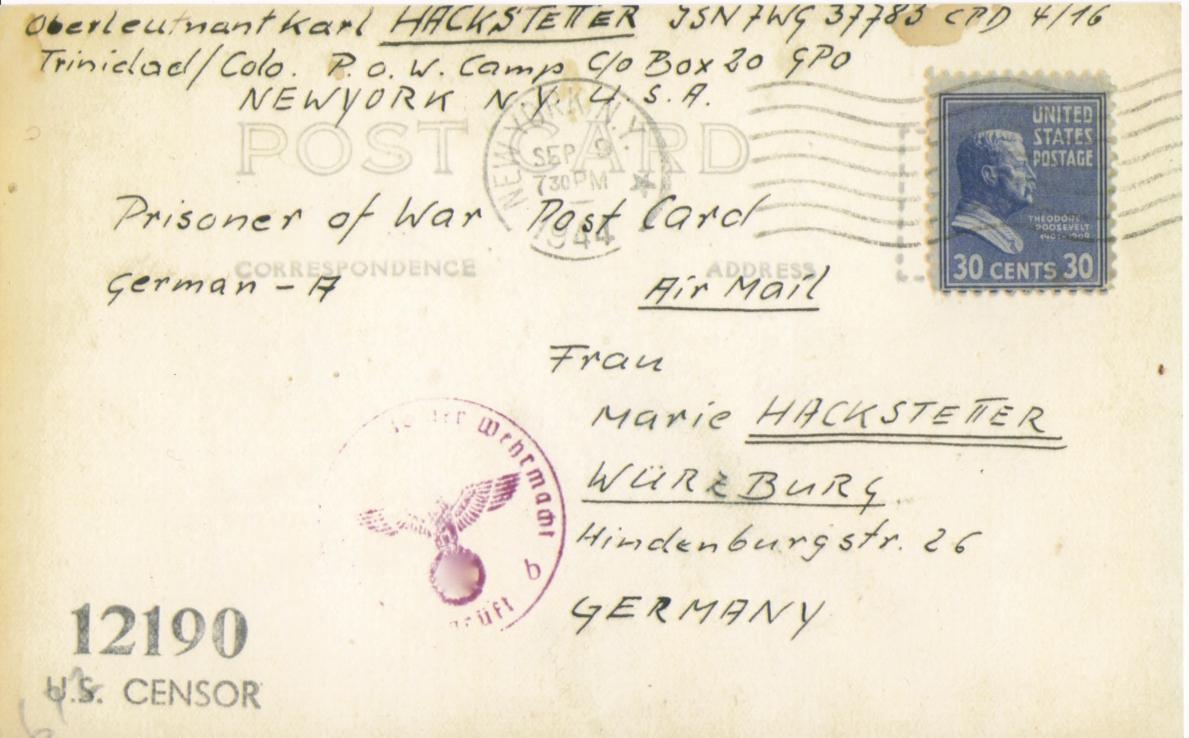 Oberleutnant Karl HACKSTETTER ISN 7WG 37783 CPD 4/16
Trinidad/Colo. P.o.W. Camp C/o Box 20 GPO
NEWYORK N.Y. U.S.A.
POST CARD
NEW YORK, N.Y.
SEP 9
730PM
1944
UNITED
STATES
POSTAGE
THEODORE
ROOSEVELT
1901-1909
30 CENTS 30
Prisoner of War Post Card
CORRESPONDENCE
ADDRESS
German - A
Air Mail
Frau
Marie HACKSTETTER
WÜRZBURG
Hindenburgstr. 26
GERMANY
der Wehrmacht
b
12190
U.S. CENSOR